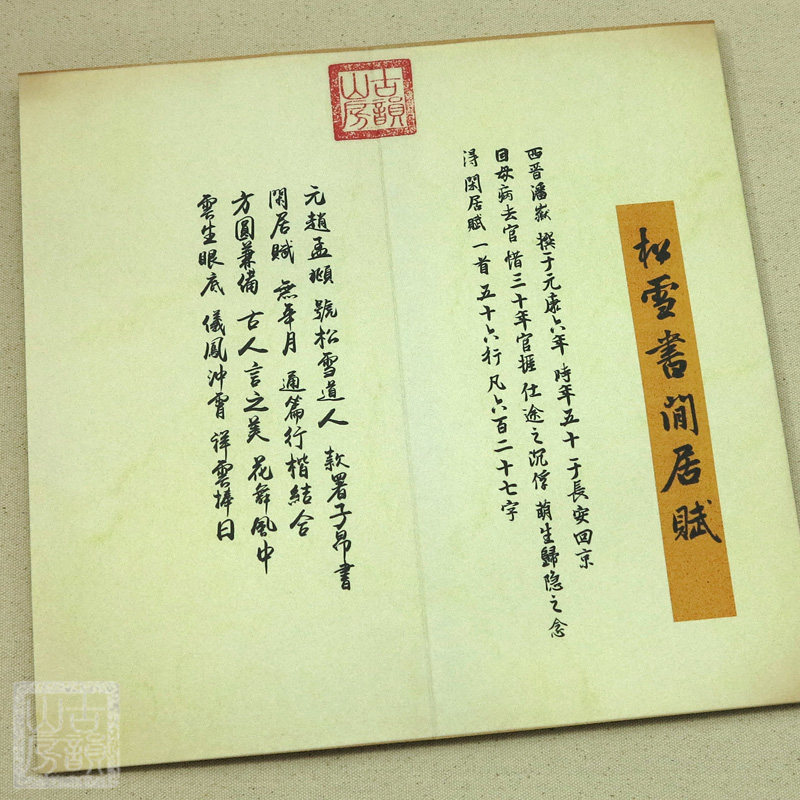 松雪書閒居賦
西晉潘嶽 撰于元康六年 時年五十 于長安回京
因母病去官 惜三十年官捱 仕途之沉俘 萌生歸隐之念
淂閑居賦一首 五十六行 凡六百二十七字
元趙孟頫 號松雪道人 款署子昂書
閑居賦 無年月 通篇行楷結合
方圓蒹備 古人言之美 花舞風中
雲生眼底 儀鳳沖霄 祥雲捧日
古韻山房
古韻山房